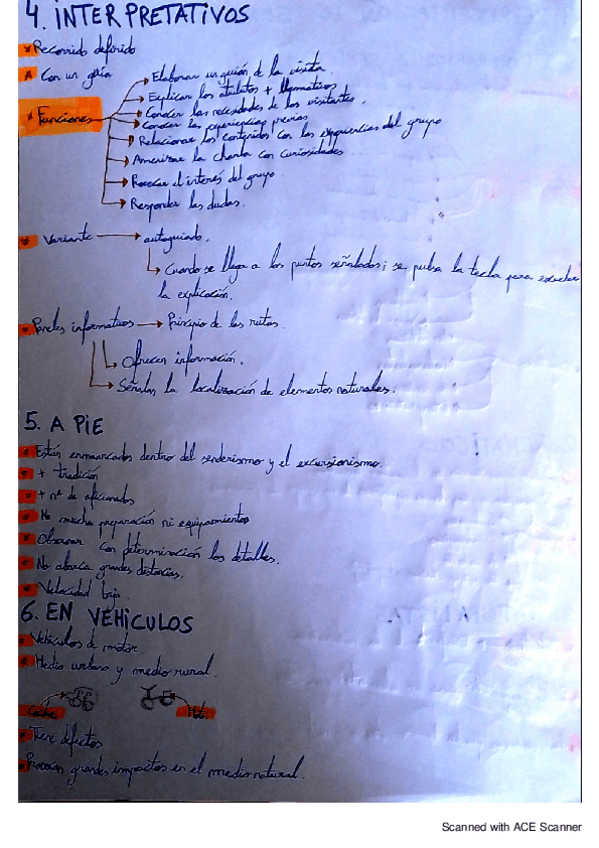 4. INTERPRETATIVOS
* Recorrido definido
* Con un guía
* Funciones
Elaborar un guión de la visita.
Explicar los atributos + llamativos
Conocer las necesidades de los visitantes.
Conocer las experiencias previas
Relacionar los contenidos con las experiencias del grupo
Amenizar la charla con curiosidades
Provocar el interés del grupo
Responder las dudas.
* Variante → autoguiado.
Cuando se llega a los puntos señalados; se pulsa la tecla para escuchar
la explicación.
* Paneles informativos → Principio de las rutas.
Ofrecen información.
Señalan la localización de elementos naturales.
5. A PIE
* Están enmarcados dentro del senderismo y el excursionismo.
* + tradición
* + nº de aficionados
* No mucha preparación ni equipamientos
* Observar con determinación los detalles.
* No abarca grandes distancias.
* Velocidad baja.
6. EN VEHICULOS
* Vehículos de motor
* Medio urbano y medio rural.
* Tiene defectos
* Provocan grandes impactos en el medio natural.
Scanned with ACE Scanner